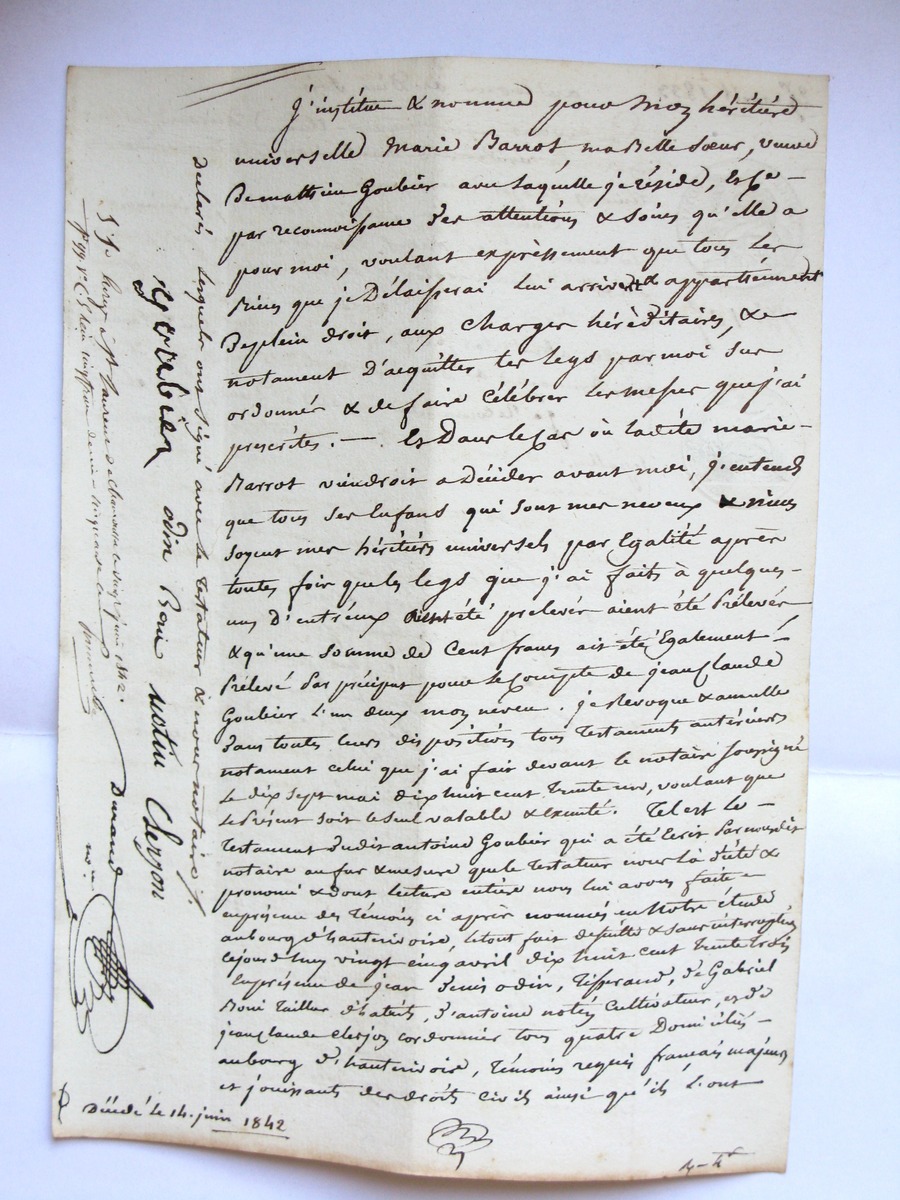 J'institue & nomme pour mon héritière
universelle Marie Barrot ma Belle sœur, veuve
De mathieu Goubier avec laquelle je réside, Et ce
par reconnoissance des attentions & soins qu'elle a
pour moi, voulant expressement que tous les
Biens que je Délaisserai lui arrivent & appartiennent
De plein droit, aux charges héréditaires, &
notament D'acquitter les legs par moi sus
ordonnés & de faire Célébrer les messes que j'ai
prescrites. — . Et Dans le cas où ladite marie
Barrot viendroit a Décéder avant moi, j'entends
que tous ses Enfans qui sont mes neveux & nieces
soyent mes héritiers universels par Egalité après
toutes fois que les legs que j'ai faits à quelques
uns D'entreux aient été Prélevés
& qu'une somme de Cent francs ait été Egalement
Prélevé Par préciput pour le Compte de jean Claude
Goubier l'un deux mon neveu. je révoque & annulle
Dans toutes leurs dispositions tous Testaments antérieurs
notament celui que j'ai fait devant le notaire soussigné
le dix sept mai dix huit cent trente un, voulant que
le Présent soit le seul valable & exécuté. Tel est le
Testament dudit antoine Goubier qui a été Ecrit Par nousdit
notaire au fur & mesure que le Testateur nous l'a dicté &
prononcé & Dont lecture entiere nous lui avons faite
en présence des Témoins ci après nommés en Notre étude
au bourg d'hauterivoire, le tout fait de suitte & sans interruption
Cejourd'huy vingt cinq avril dix huit cent trente trois
En présence de jean Denis odin, Tisserand, de Gabriel
Boni Tailleur d'habits, d'antoine notin Cultivateur, et de
jean Claude Cherjon cordonnier tous quatre Domiciliés
au bourg d'hauterivoire, Témoins requis français majeurs
et jouissants des droits civils ainsi qu'ils l'ont
Declaré. Lesquels ont signé avec le Testateur & nous notaire
Goubier odin Boni notin Cherjon
Durand
Décédé le 14. juin 1842